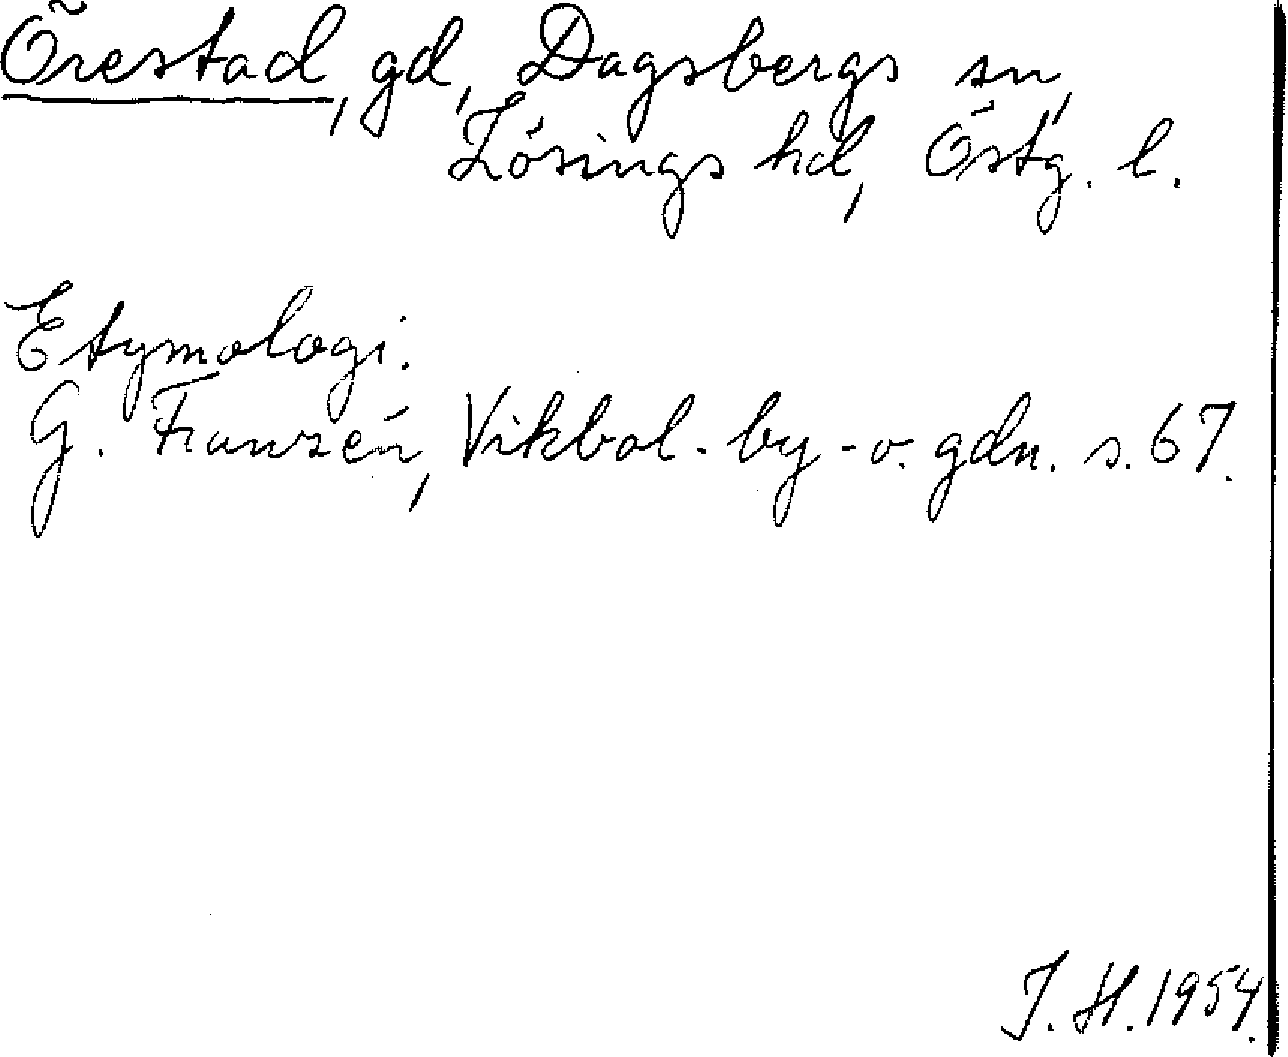 Örestad, gd, Dagsbergs sn,
Lösings hd, Östg. l.
Etymologi.
G. Franzén, Vikbol. by- o. gdn. s. 67.
J. H. 1954.